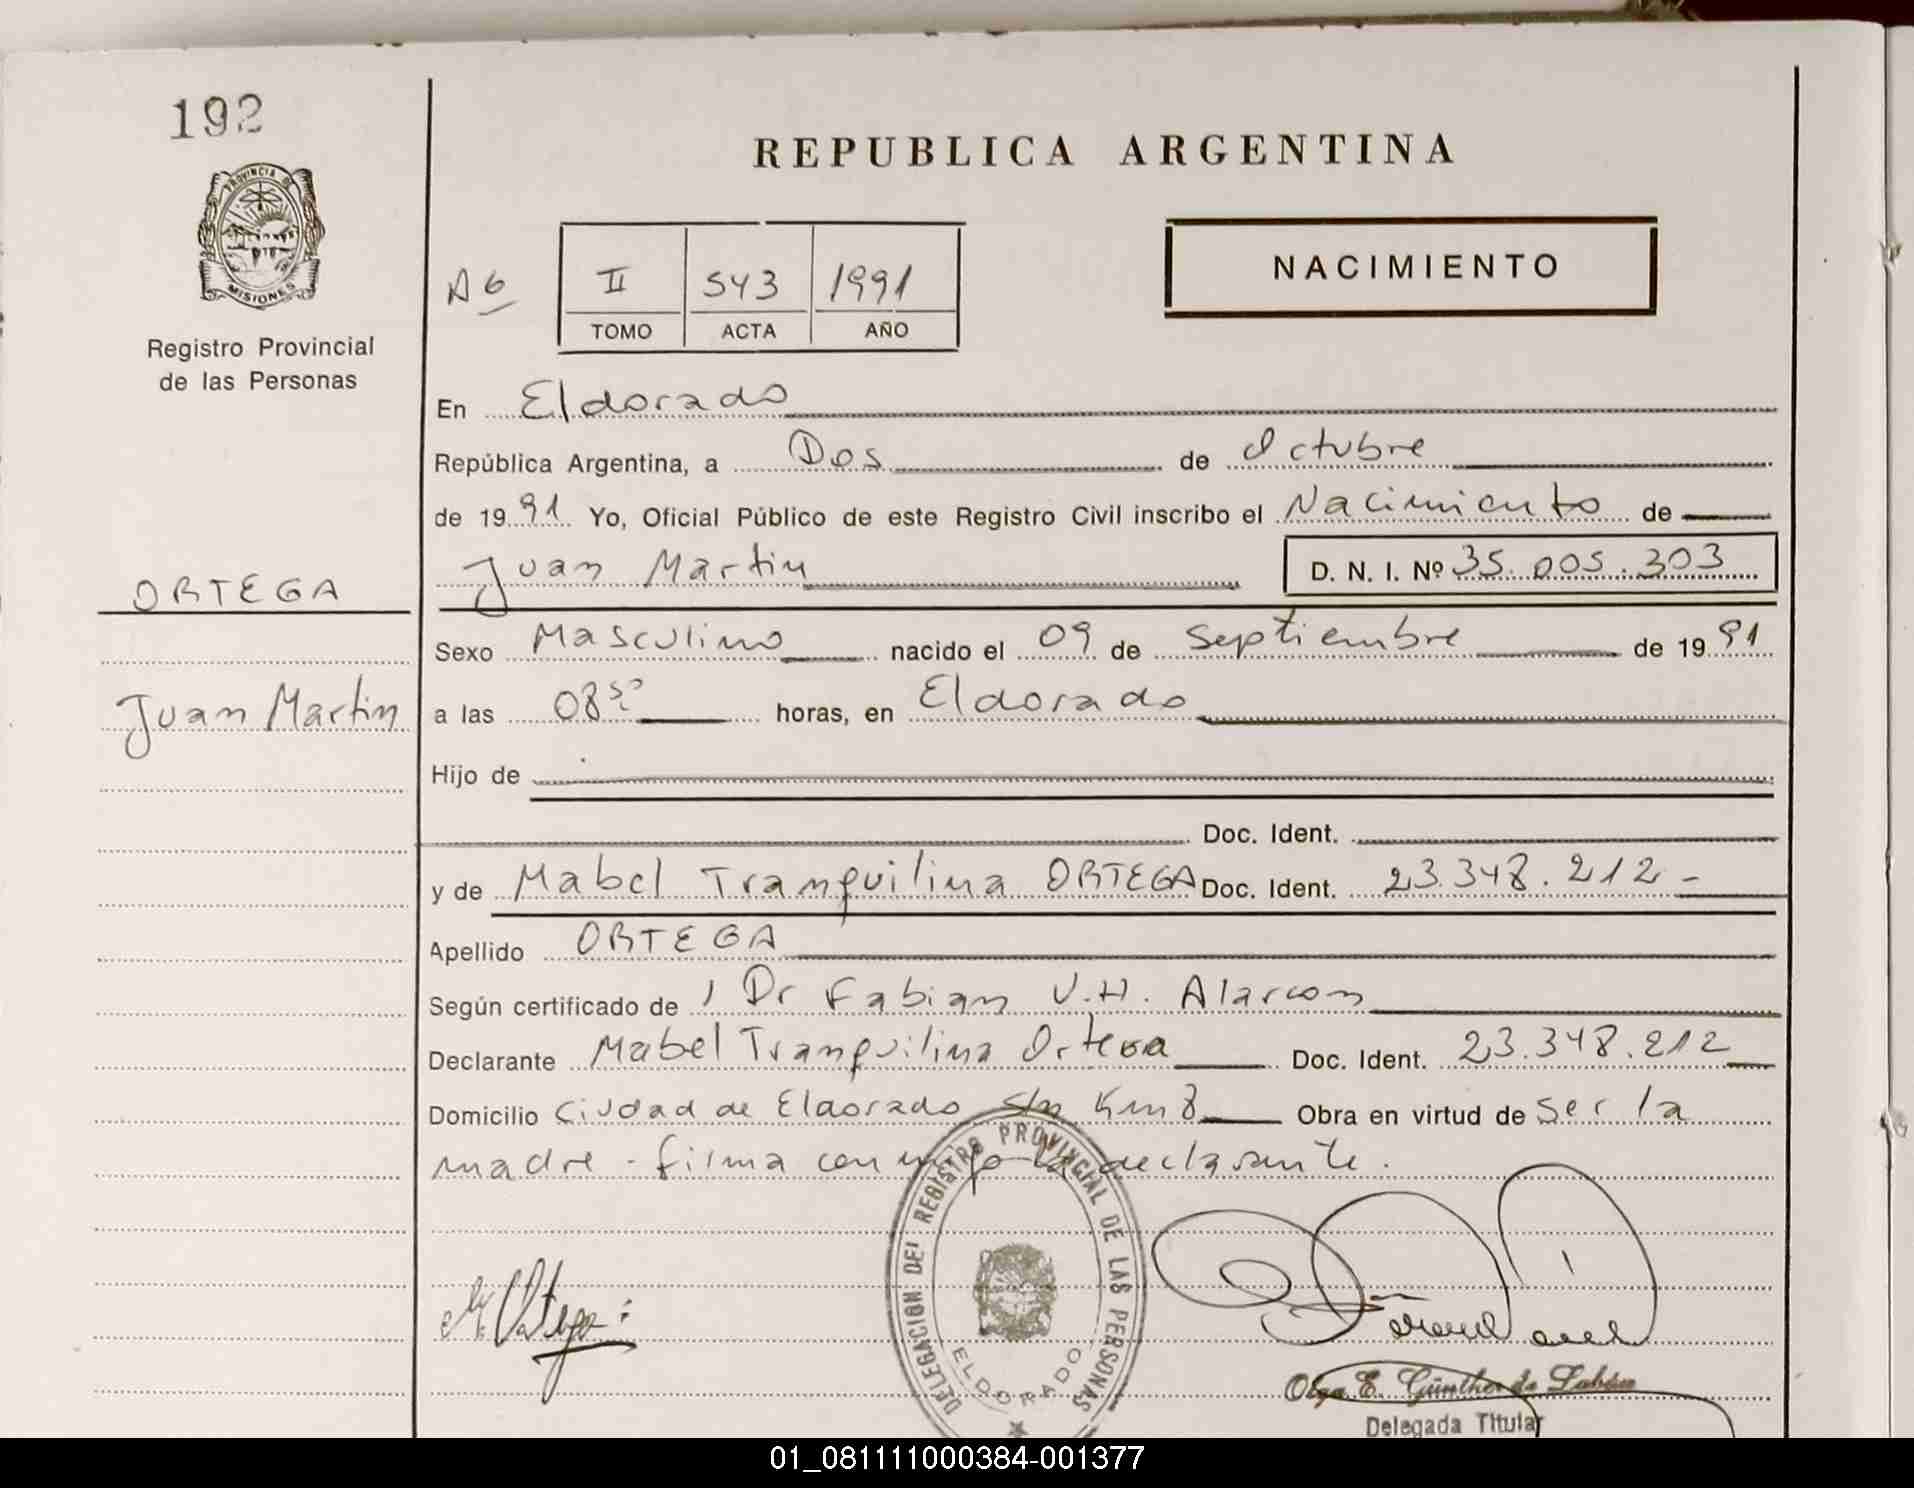 192
REPUBLICA ARGENTINA
PROVINCIA DE
MISIONES
Registro Provincial
de las Personas
A6
II 543 1991
TOMO ACTA AÑO
NACIMIENTO
En Eldorado
República Argentina, a Dos de Octubre
de 1991 Yo, Oficial Público de este Registro Civil inscribo el Nacimiento de
Juan Martin D. N. I. Nº 35.005.303
ORTEGA
Juan Martin
Sexo Masculino nacido el 09 de Septiembre de 1991
a las 08 50 horas, en Eldorado
Hijo de
Doc. Ident.
y de Mabel Tranquilina ORTEGA Doc. Ident. 23.348.212-
Apellido ORTEGA
Según certificado de Dr Fabian V.H. Alarcon
Declarante Mabel Tranquilina Ortega Doc. Ident. 23.348.212
Domicilio Ciudad de Eldorado s/n Km 8 Obra en virtud de ser la
madre - firma conmigo la declarante.
M. Ortega
DELEGACION DEL REGISTRO PROVINCIAL DE LAS PERSONAS
ELDORADO
Olga E. Günther de
Delegada Titular
01_081111000384-001377